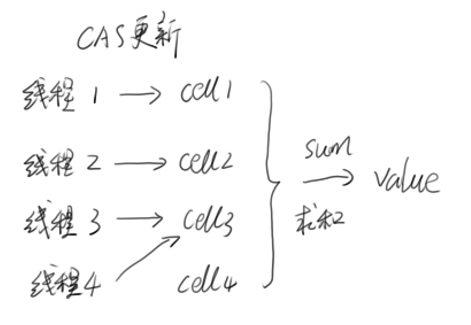 CAS更新
线程 1 → cell1
线程 2 → cell2
线程 3 → cell3
线程4 cell4
sum
求和
→ value